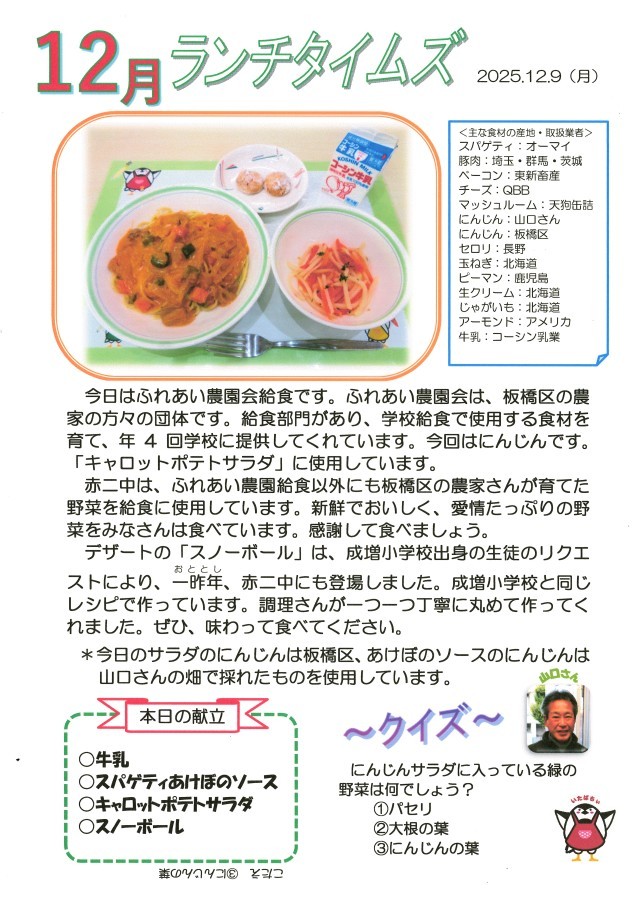 12月 ランチタイムズ 2025.12.9（月）
＜主な食材の産地・取扱業者＞
スパゲティ：オーマイ
豚肉：埼玉・群馬・茨城
ベーコン：東新畜産
チーズ：QBB
マッシュルーム：天狗缶詰
にんじん：山口さん
にんじん：板橋区
セロリ：長野
玉ねぎ：北海道
ピーマン：鹿児島
生クリーム：北海道
じゃがいも：北海道
アーモンド：アメリカ
牛乳：コーシン乳業
コーシン牛乳
今日はふれあい農園会給食です。ふれあい農園会は、板橋区の農
家の方々の団体です。給食部門があり、学校給食で使用する食材を
育て、年 4 回学校に提供してくれています。今回はにんじんです。
「キャロットポテトサラダ」に使用しています。
赤二中は、ふれあい農園給食以外にも板橋区の農家さんが育てた
野菜を給食に使用しています。新鮮でおいしく、愛情たっぷりの野
菜をみなさんは食べています。感謝して食べましょう。
デザートの「スノーボール」は、成増小学校出身の生徒のリクエ
おととし
ストにより、一昨年、赤二中にも登場しました。成増小学校と同じ
レシピで作っています。調理さんが一つ一つ丁寧に丸めて作ってく
れました。ぜひ、味わって食べてください。
＊今日のサラダのにんじんは板橋区、あけぼのソースのにんじんは
山口さんの畑で採れたものを使用しています。
山口さん
本日の献立
○牛乳
○スパゲティあけぼのソース
○キャロットポテトサラダ
○スノーボール
～クイズ～
にんじんサラダに入っている緑の
野菜は何でしょう？
①パセリ
②大根の葉
③にんじんの葉
いたばちぃ
こたえ ③にんじんの葉